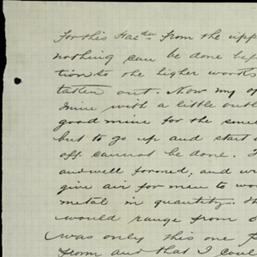 For this
from the upp
nothing can be done bef
tion to the higher works
taken out. Now my op
mine with a little outl
good mine for the sme
but to go up and start
off cannot be done. I
and well formed, and w
give air for men to wo
metal in quantity.
would range from
was only this one f
from and that I coul